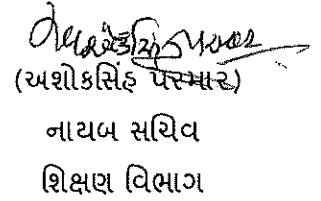 (અશોકસિંહ પરમાર)
નાયબ સચિવ
શિક્ષણ વિભાગ